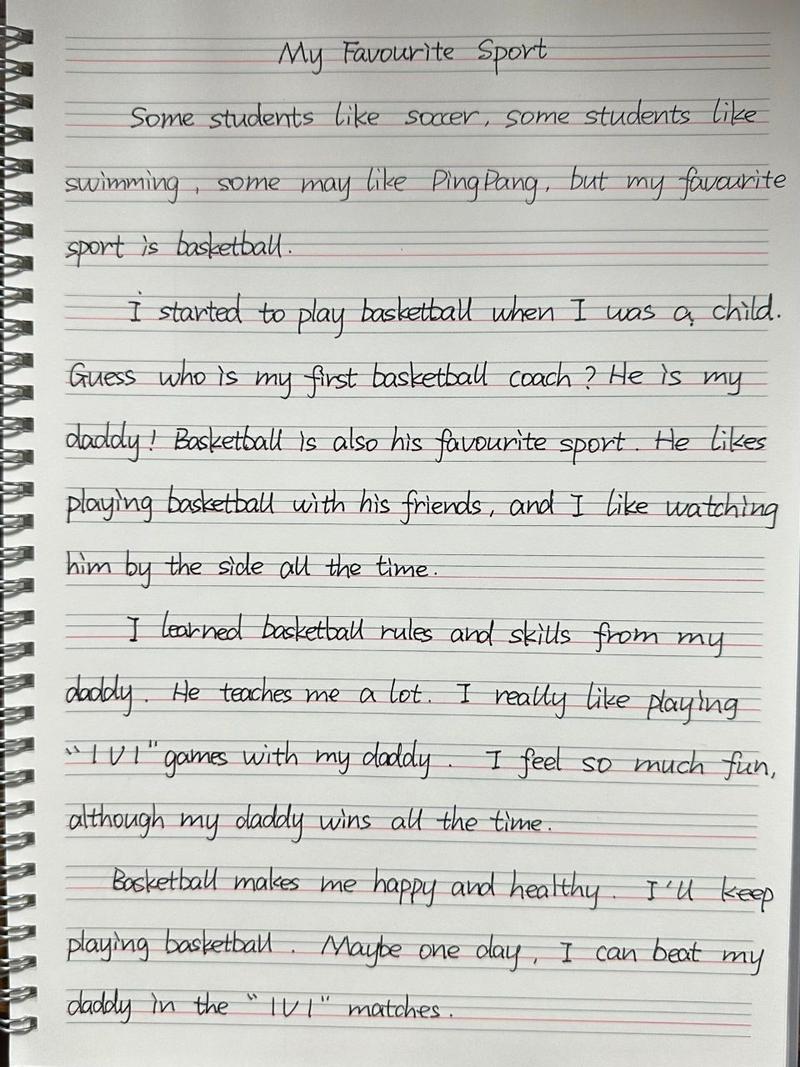 My Favourite Sport
Some students like soccer, some students like
swimming, some may like PingPang, but my favourite
sport is basketball.
I started to play basketball when I was a child.
Guess who is my first basketball coach? He is my
daddy! Basketball is also his favourite sport. He likes
playing basketball with his friends, and I like watching
him by the side all the time.
I learned basketball rules and skills from my
daddy. He teaches me a lot. I really like playing
"1V1" games with my daddy. I feel so much fun,
although my daddy wins all the time.
Basketball makes me happy and healthy. I'll keep
playing basketball. Maybe one day, I can beat my
daddy in the "1V1" matches.